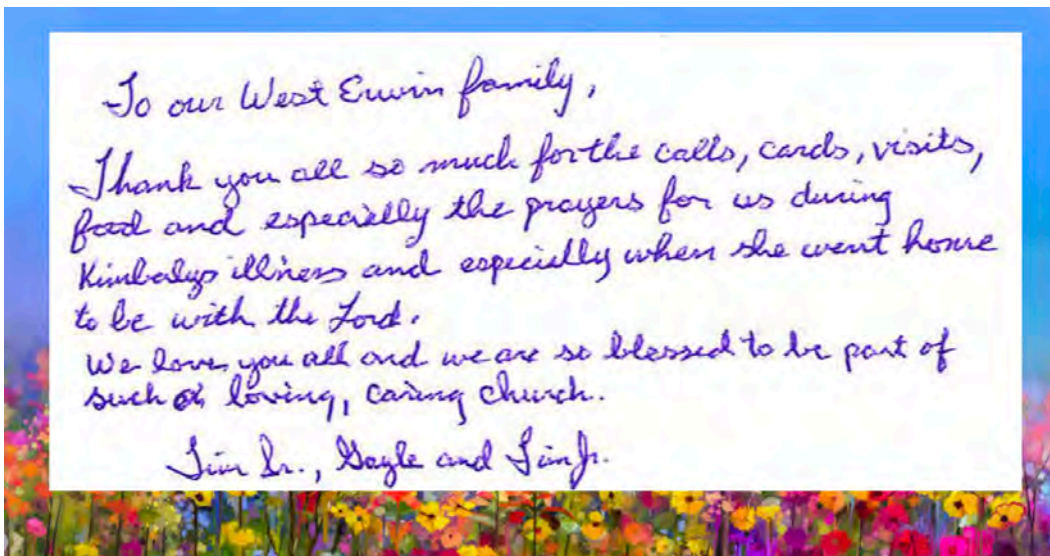 To our West Erwin family,
Thank you all so much for the calls, cards, visits,
food and especially the prayers for us during
Kimberlys illness and especially when she went home
to be with the Lord.
We love you all and we are so blessed to be part of
such a loving, caring church.
Jim Sr., Gayle and Jim Jr.